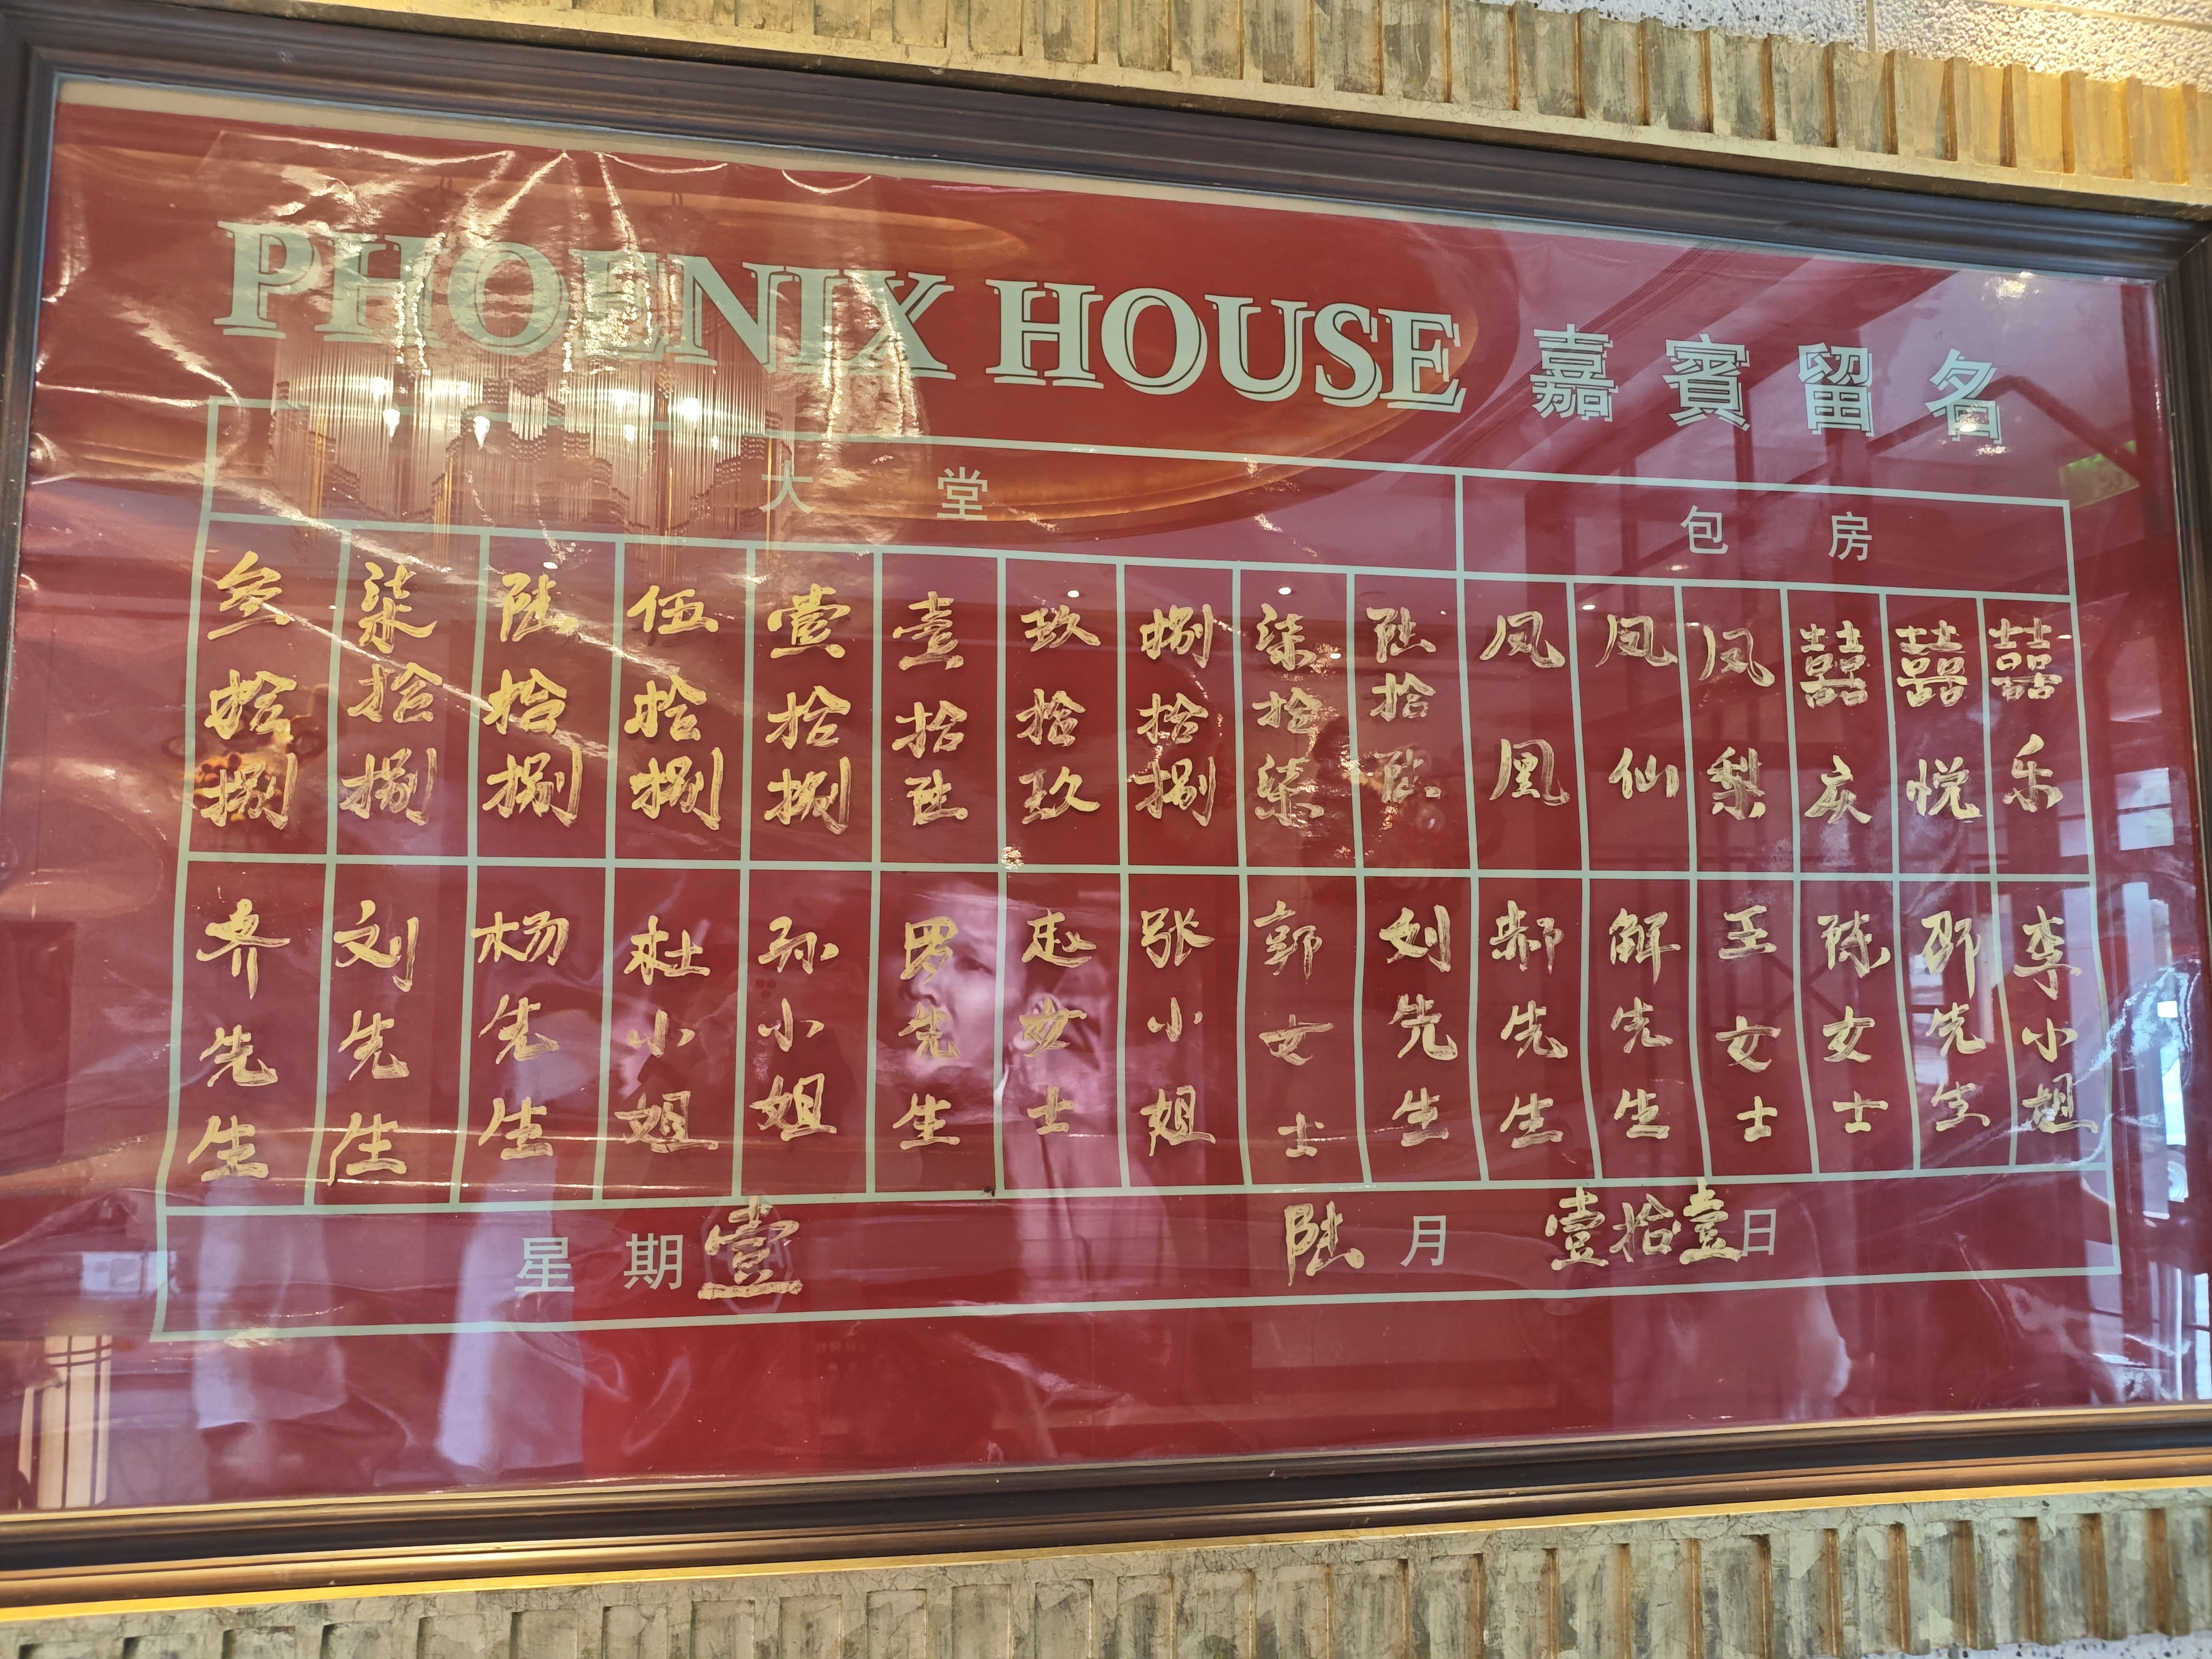 PHOENIX HOUSE 嘉賓留名
大堂 包房
叁拾捌 柒拾捌 陆拾捌 伍拾捌 壹拾捌 壹拾陆 玖拾玖 捌拾捌 柒拾柒 陆拾陆 凤凰 凤仙 凤梨 囍庆 囍悦 囍乐
齐先生 刘先生 杨先生 杜小姐 孙小姐 罗先生 赵女士 张小姐 郭女士 刘先生 郝先生 解先生 王女士 陈女士 邵先生 李小姐
星期壹 陆月壹拾壹日